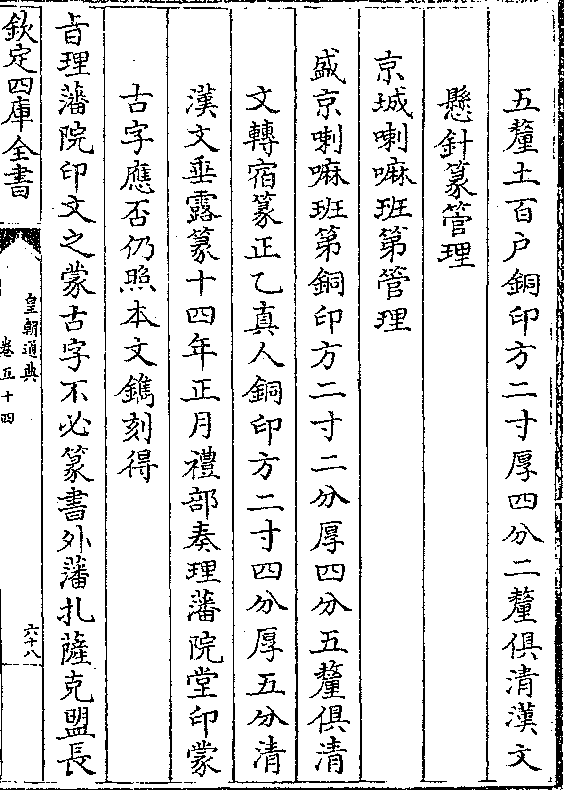 五釐土百户銅印方二寸厚四分二釐俱清漢文
懸針篆管理
京城喇嘛班第管理
盛京喇嘛班第銅印方二寸二分厚四分五釐俱清
文轉宿篆正乙真人銅印方二寸四分厚五分清
漢文垂露篆十四年正月禮部奏理藩院堂印蒙
古字應否仍照本文鐫刻得
㫖理藩院印文之蒙古字不必篆書外藩扎薩克盟長
欽定四庫全書
皇朝通典
卷五十四
六十八